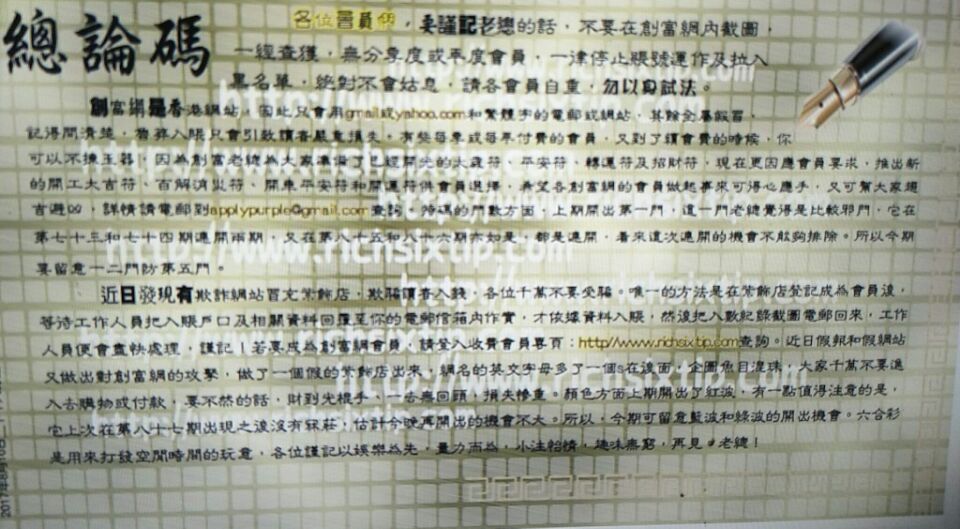 總論碼
各位會員們，要謹記老總的話，不要在創富網內截圖，
一經查獲，無分季度或年度會員，一律停止賬號運作及拉入
黑名單，絕對不會姑息，請各會員自重，勿以身試法。
創富網是香港網站，因此只會用gmail或yahoo.com和繁體字的電郵或網站，其餘全屬假冒，
記得問清楚，若葬入賬只會引致讀者嚴重損失。有些每季或每年付費的會員，又到了續會費的時候，你
可以不揀玉器，因為創富老總為大家準備了已經開光的太歲符、平安符、轉運符及招財符，現在更因應會員要求，推出新
的開工大吉符、百解消災符、開車平安符和開運符供會員選擇，希望各創富網的會員做起事來可得心應手，又可幫大家趨
吉避凶，詳情請電郵到applypurple@gmail.com查詢。特碼的門數方面，上期開出第一門，這一門老總覺得是比較邪門，它在
第七十三和七十四期連開兩期，又在第八十五和八十六期亦如是，都是連開，看來這次連開的機會不能夠排除。所以今期
要留意一二門防第五門。
近日發現有欺詐網站冒充紫飾店，欺騙讀者入錢，各位千萬不要受騙。唯一的方法是在紫飾店登記成為會員後，
等待工作人員把入賬戶口及相關資料回覆至你的電郵信箱內作實，才依據資料入賬，然後把入數紀錄截圖電郵回來，工作
人員便會盡快處理，謹記！若要成為創富網會員，請登入收費會員專頁：http://www.richsixtip.com查詢。近日假報和假網站
又做出對創富網的攻擊，做了一個假的紫飾店出來，網名的英文字母多了一個s在後面，企圖魚目混珠，大家千萬不要進
入去購物或付款，要不然的話，財到光棍手，一去無回頭，損失慘重。顏色方面上期開出了紅波，有一點值得注意的是，
它上次在第八十七期出現之後沒有冧莊，估計今晚再開出的機會不大。所以，今期可留意藍波和綠波的開出機會。六合彩
是用來打發空閒時間的玩意，各位謹記以娛樂為先，量力而為，小注怡情，趣味無窮，再見，老總！
http://www.richsixtip.com